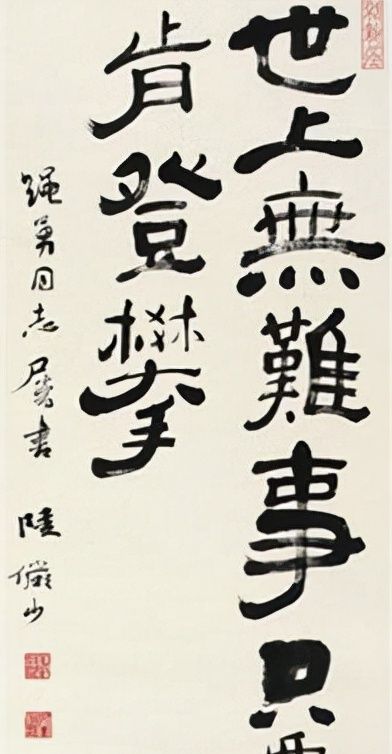 世上無難事只
肯登攀
繩勇同志屬書
陸儼少